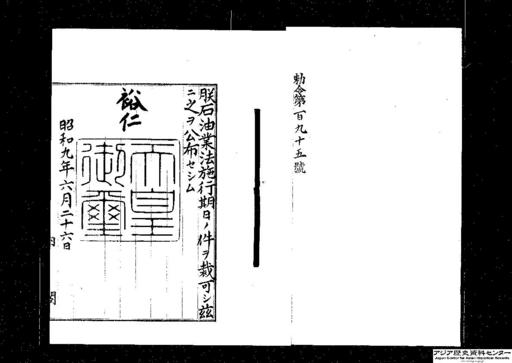 勅令第百九十五號
朕石油業法施行期日ノ件ヲ裁可シ茲
ニ之ヲ公布セシム
裕仁
天皇
御璽
昭和九年六月二十六日
内閣
アジア歴史資料センター
Japan Center for Asian Historical Records